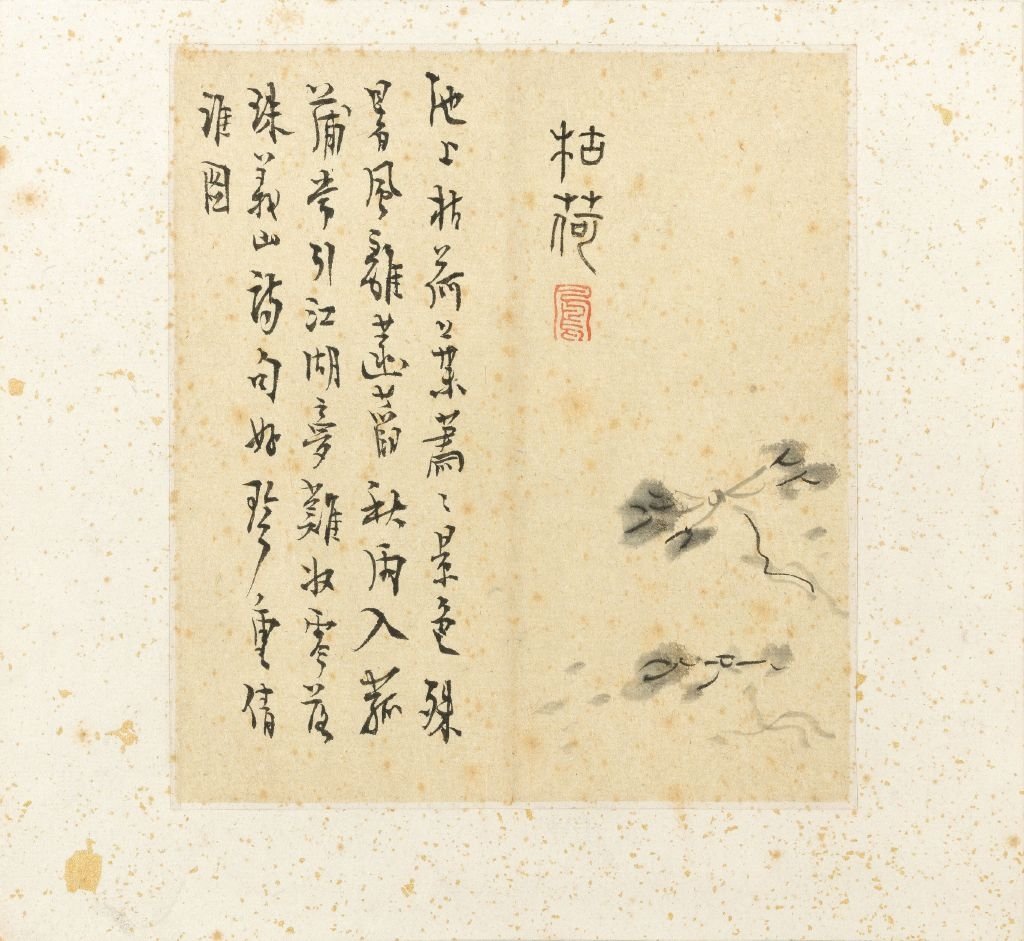 枯荷
池上枯荷葉蕭〻景色殊
暑風離菡萏秋雨入菰
蒲常引江湖夢難收零落
珠義山詩句好珍重倩
誰圖